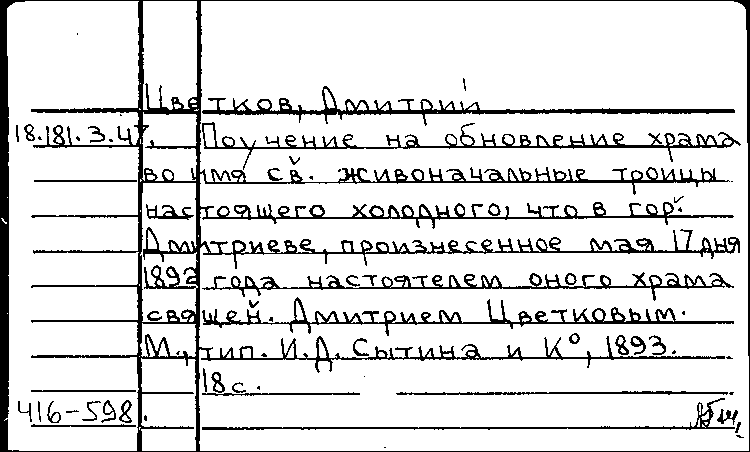 Цветков, Дмитрий
18.181.3.47. Поучение на обновление храма
во имя св. живоначальные троицы
настоящего холодного, что в гор.
Дмитриеве, произнесенное мая 17 дня
1892 года настоятелем оного храма
свящей. Дмитрием Цветковым.
М., тип. И.Д. Сытина и К°, 1893.
18 с.
416-598.